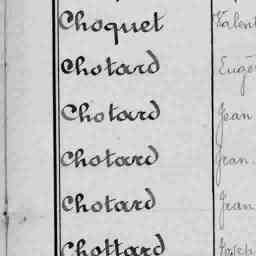 Choquet Valent
Chotard Eugè
Chotard Jean
Chotard Jean
Chotard Jean
Chottard Joseph